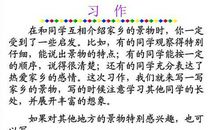 习作
在和同学互相介绍家乡的景物时，你一定
受到了一些启发。比如，有的同学观察得特别
仔细，能说出景物的特点；有的同学能按一定
的顺序，说得很清楚；还有的同学充分表达了
热爱家乡的感情。这次习作，我们就来写一写
家乡的景物，写的时候注意学习其他同学的长
处，并展开丰富的想象。
如果对其他地方的景物特别感兴趣，也可